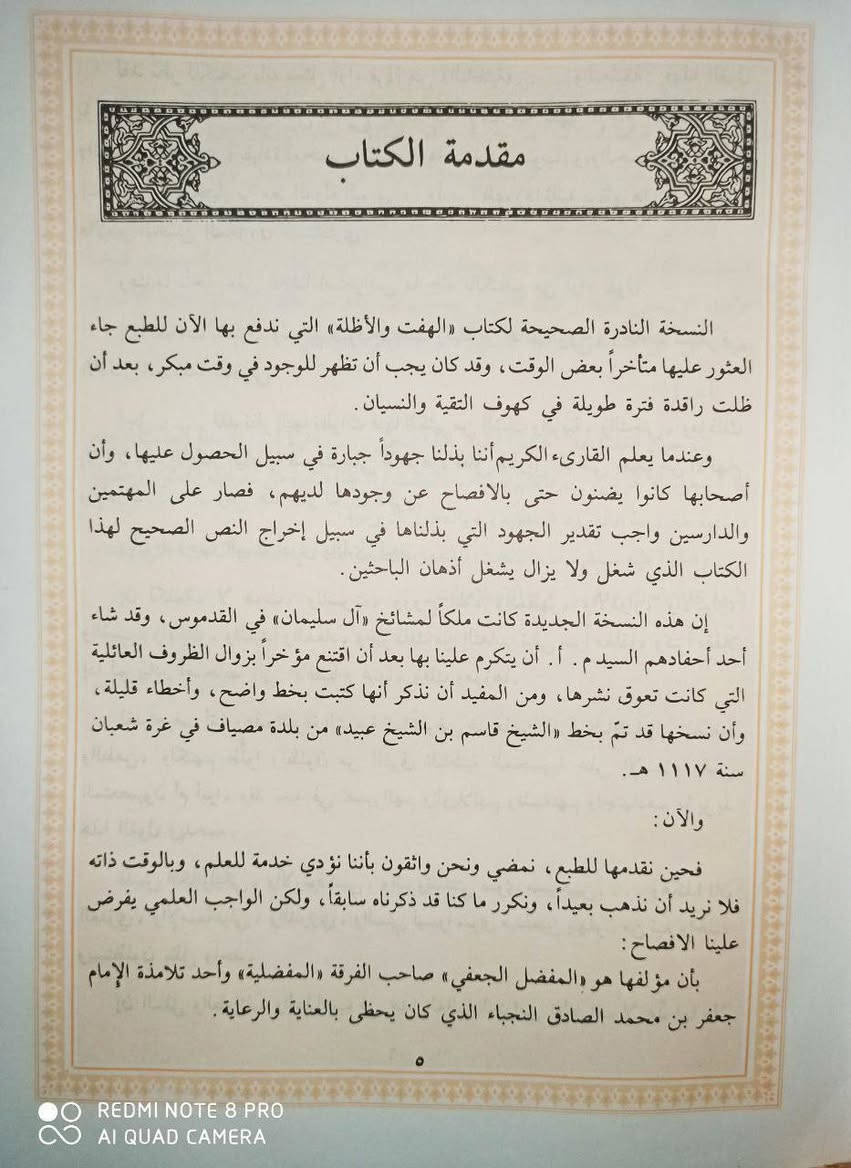 مقدمة الكتاب
النسخة النادرة الصحيحة لكتاب «الهفت والأظلة» التي ندفع بها الآن للطبع جاء
العثور عليها متأخراً بعض الوقت، وقد كان يجب أن تظهر للوجود في وقت مبكر، بعد أن
ظلت راقدة فترة طويلة في كهوف التقية والنسيان.
وعندما يعلم القارىء الكريم أننا بذلنا جهوداً جبارة في سبيل الحصول عليها، وأن
أصحابها كانوا يضنون حتى بالافصاح عن وجودها لديهم، فصار على المهتمين
والدارسين واجب تقدير الجهود التي بذلناها في سبيل إخراج النص الصحيح لهذا
الكتاب الذي شغل ولا يزال يشغل أذهان الباحثين.
إن هذه النسخة الجديدة كانت ملكاً لمشائخ «آل سليمان» في القدموس، وقد شاء
أحد أحفادهم السيد م. أ. أن يتكرم علينا بها بعد أن اقتنع مؤخراً بزوال الظروف العائلية
التي كانت تعوق نشرها، ومن المفيد أن نذكر أنها كتبت بخط واضح، وأخطاء قليلة،
وأن نسخها قد تمّ بخط «الشيخ قاسم بن الشيخ عبيد» من بلدة مصياف في غرة شعبان
سنة ١١١٧ هـ.
والآن:
فحين نقدمها للطبع، نمضي ونحن واثقون بأننا نؤدي خدمة للعلم، وبالوقت ذاته
فلا نريد أن نذهب بعيداً، ونكرر ما كنا قد ذكرناه سابقاً، ولكن الواجب العلمي يفرض
علينا الافصاح:
بأن مؤلفها هو «المفضل الجعفي» صاحب الفرقة «المفضلية» وأحد تلامذة الإمام
جعفر بن محمد الصادق النجباء الذي كان يحظى بالعناية والرعاية.
٥
REDMI NOTE 8 PRO
AI QUAD CAMERA